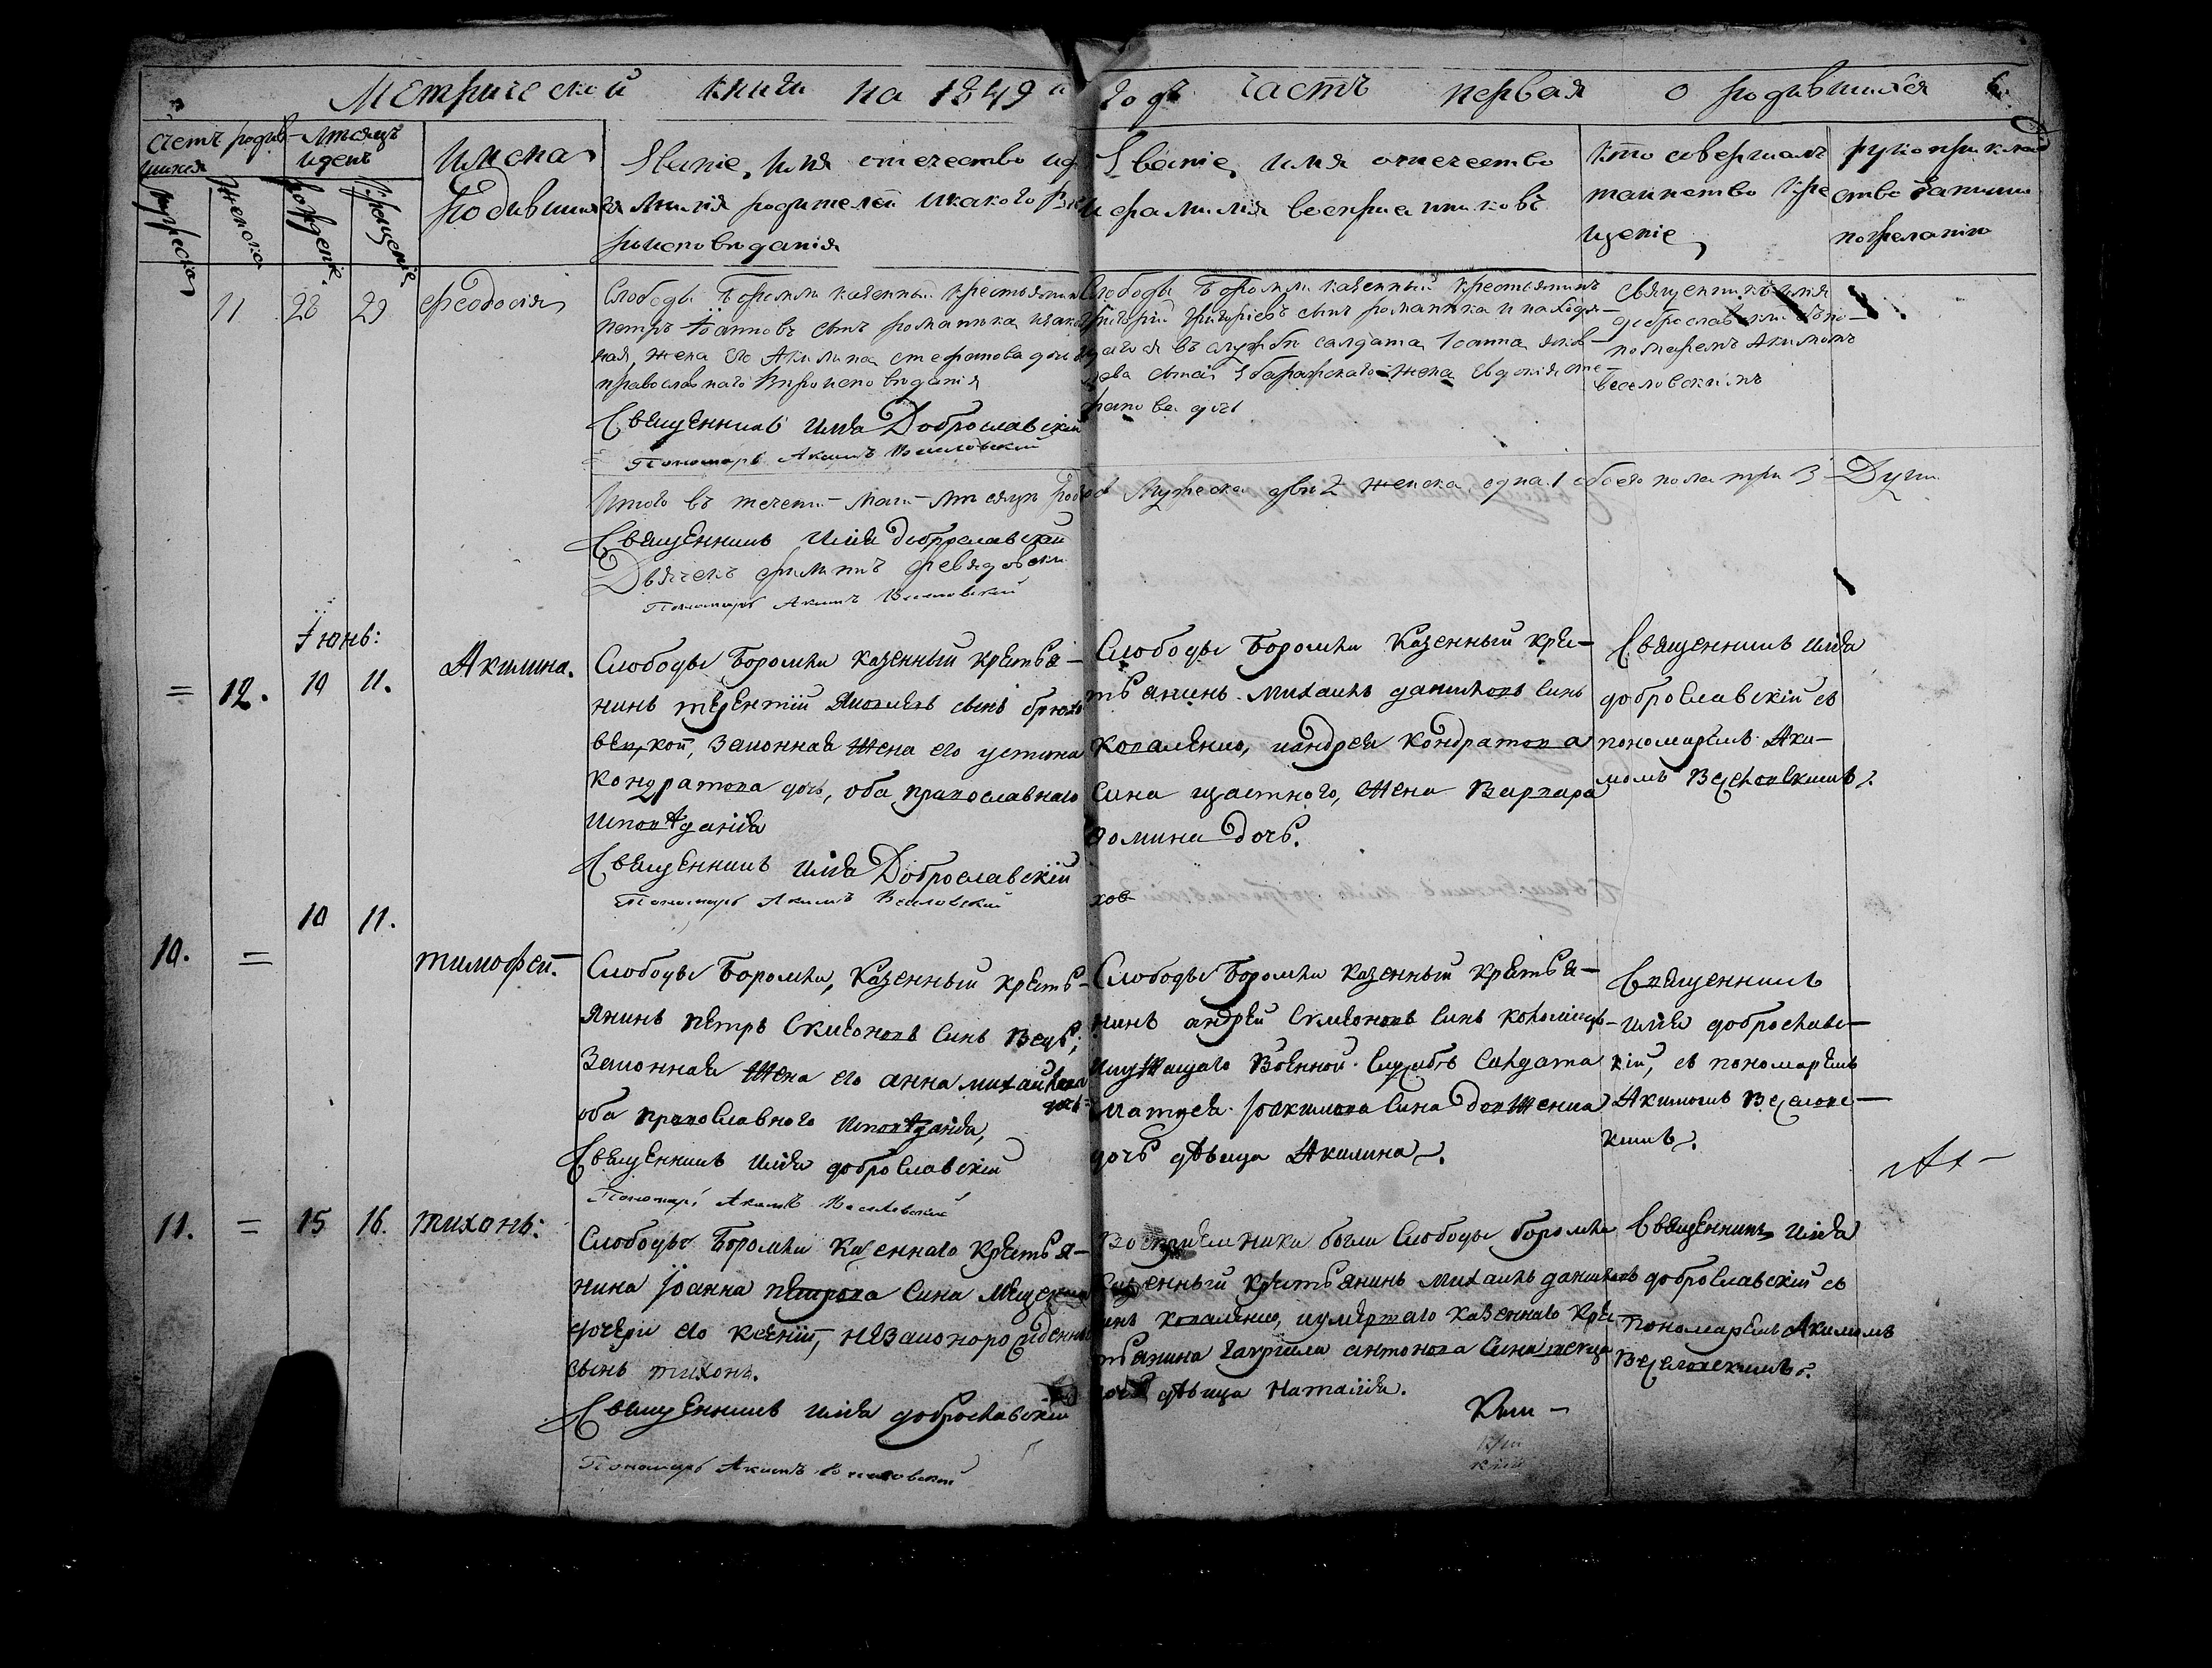 Метрической книги на 1849й годъ часть первая о родившихся 6.
счетъ родив-
шихся
мужеска
женска
Мѣсяцъ
и день
рожденіе.
крещеніе
Имена
родившихся
Званіе, имя отечество и фа-
милія родителей и какого Вѣ-
роисповѣданія
Званіе, имя отечество
и фамилія воспріемниковъ
кто совершалъ
таинство кре
щеніе
рукоприклад
ство
по желанію
11 28 29 Феодосія
Слободы Боромли казенный крестьянинъ
Петръ Іоанновъ сынъ Романика
жена его Акилина Стефанова дочь
православнаго Вѣроисповѣданія
Священникъ Илія Доброславскій
Пономарь Акимъ Веселовскій
Слободы Боромли казенный крестьянинъ
Григорій Григорьевъ сынъ Романика и находя-
щагося въ службѣ солдата Іоанна
сына жена Евдокія Сте-
фанова дочь
Священникъ Илія
Доброславскій съ по-
номаремъ Акимомъ
Веселовскимъ
Итого въ течени маи Мѣсяцѣ Мужеска два 2 женска одна 1 обоего пола три 3 Души
Священникъ Илія Доброславскій
Дьячекъ Филипъ
Пономарь Акимъ Веселовскій
Іюнь:
= 12. 10 11. Акилина.
Слободы Боромли казенный крестья-
нинъ Терентій Яковлевъ сынъ Брюхо
вецкой, Законная Жена его Устина
Кондратова дочь, оба православнаго
исповѣданія
Священникъ Илія Доброславскій
Пономарь Акимъ Веселовскій
Слободы Боромли Казенный кре-
стьянинъ Михаилъ Даниловъ Синъ
Коваленко, и Андрея Кондратова
Сина щастного, Жена Варвара
Фомина Дочь.
хов
Священникъ Илія
Доброславскій съ
пономаремъ Аки-
момъ Веселовскимъ.
10 11.
10. = Тимофей.
Слободы Боромли, Казенный кресть-
янинъ Петръ Симеоновъ Синъ
Законная Жена его Анна Михайлова
дочь
оба православного исповѣданія,
Священникъ Илія Доброславскій
Пономарь Акимъ Веселовскій
Слободы Боромли казенный крестья-
нинъ Андрей Симеоновъ Синъ
Военной Службѣ Салдата
Матвея Іоакимова Сина Довженка
дочь дѣвица Акилина.
Священникъ
Илія Доброславс-
кій, съ пономаремъ
Акимомъ Веселовс-
кимъ.
11. = 15 16. Тихонъ:
Слободы Боромли Казеннаго Крестья-
нина Іоанна Петрова Сина
дочери его Ксеніи, незаконорожденный
сынъ Тихонъ.
Священникъ Илія Доброславскій
Пономарь Акимъ Веселовскій
Воспріемники были Слободы Боромли
Казенный крестьянинъ Михаилъ Даниловъ
Синъ Коваленко, и умершаго казеннаго Кре
стьянина Гавриила Антонова Сина
дочь дѣвица Наталія.
Священникъ Илія
Доброславскій съ
Пономаремъ Акимомъ
Веселовскимъ.